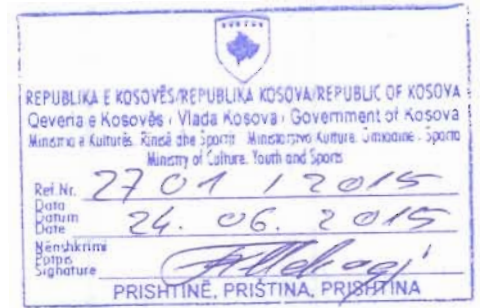 REPUBLIKA E KOSOVËS/REPUBLIKA KOSOVA/REPUBLIC OF KOSOVA
Qeveria e Kosovës / Vlada Kosova / Government of Kosova
Ministria e Kulturës, Rinisë dhe Sportit Ministarstvo Kulture, Omladine i Sporta
Ministry of Culture, Youth and Sports
Ref.Nr. 2701 / 2015
Data
Datum
Date 24. 06. 2015
Nënshkrimi
Potpis
Sighature
PRISHTINË, PRIŠTINA, PRISHTINA